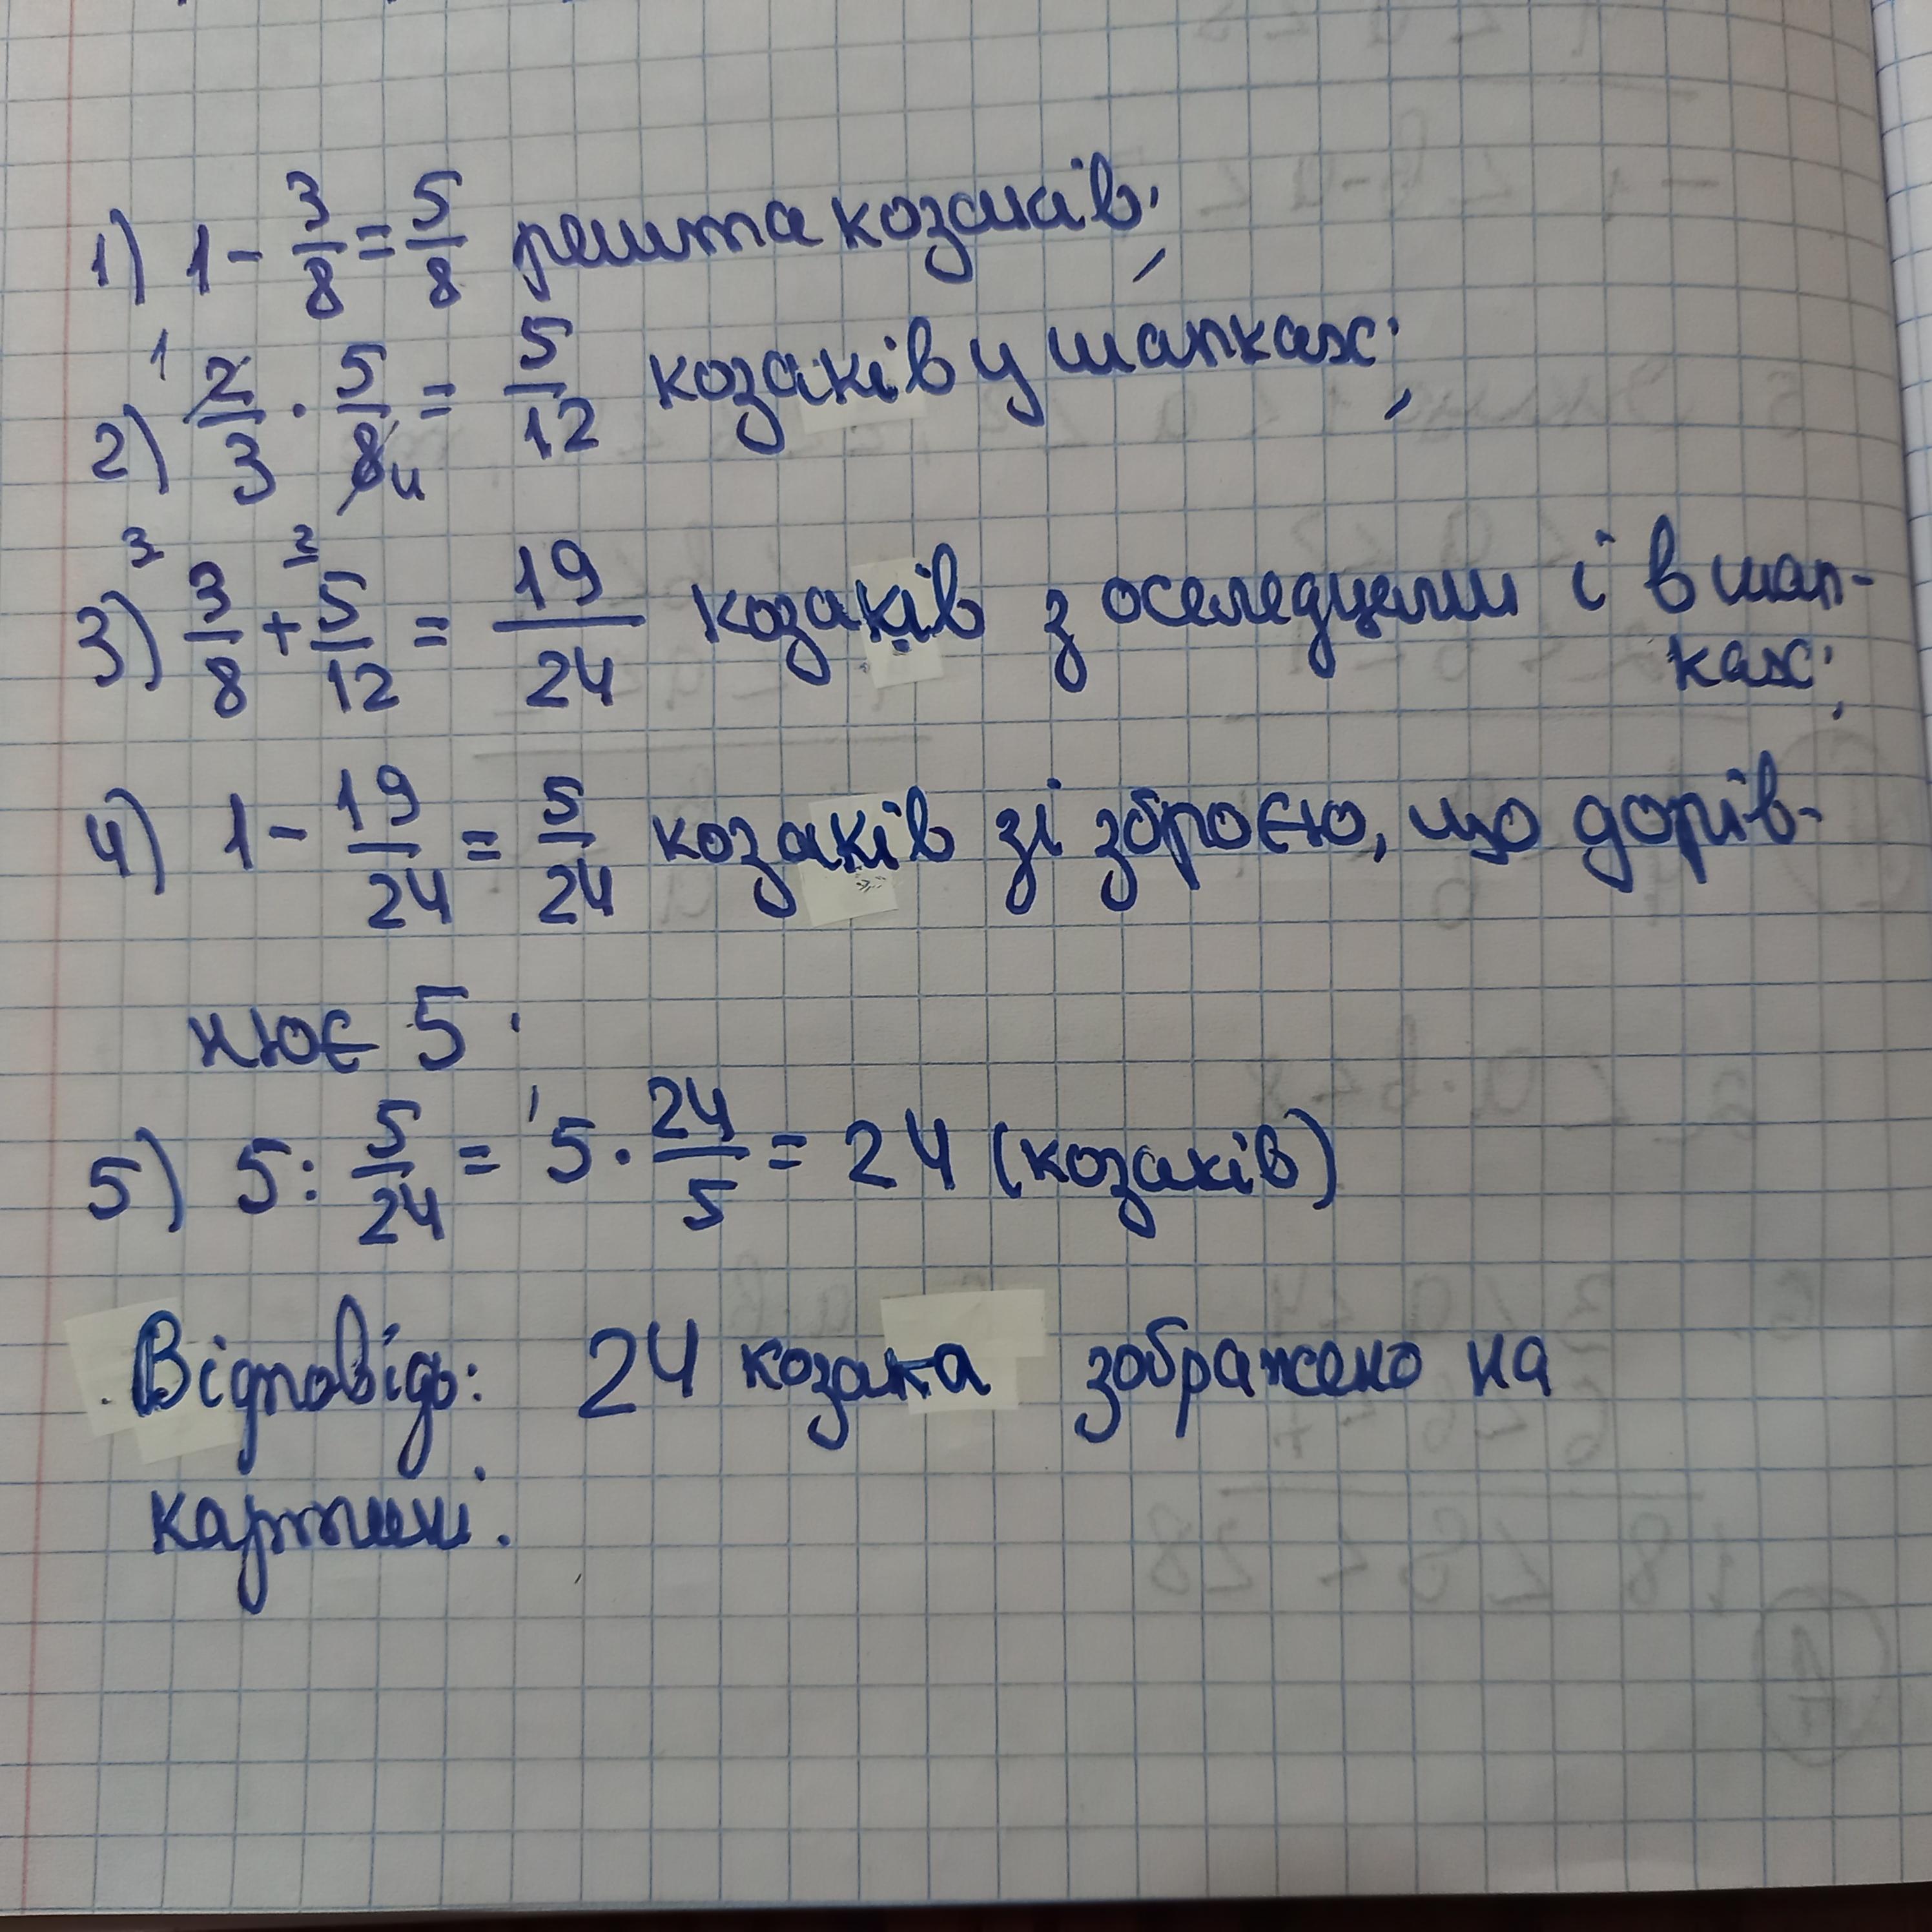 1) 1 - 3/8 = 5/8 решта козаків;
2) 2/3 · 5/8 = 5/12 козаків у шапках;
3) 3/8 + 5/12 = 19/24 козаків з оселедцями і в шап-
ках;
4) 1 - 19/24 = 5/24 козаків зі зброєю, що дорів-
нює 5.
5) 5 : 5/24 = 5 · 24/5 = 24 (козаків)
Відповідь: 24 козака зображено на
картині.